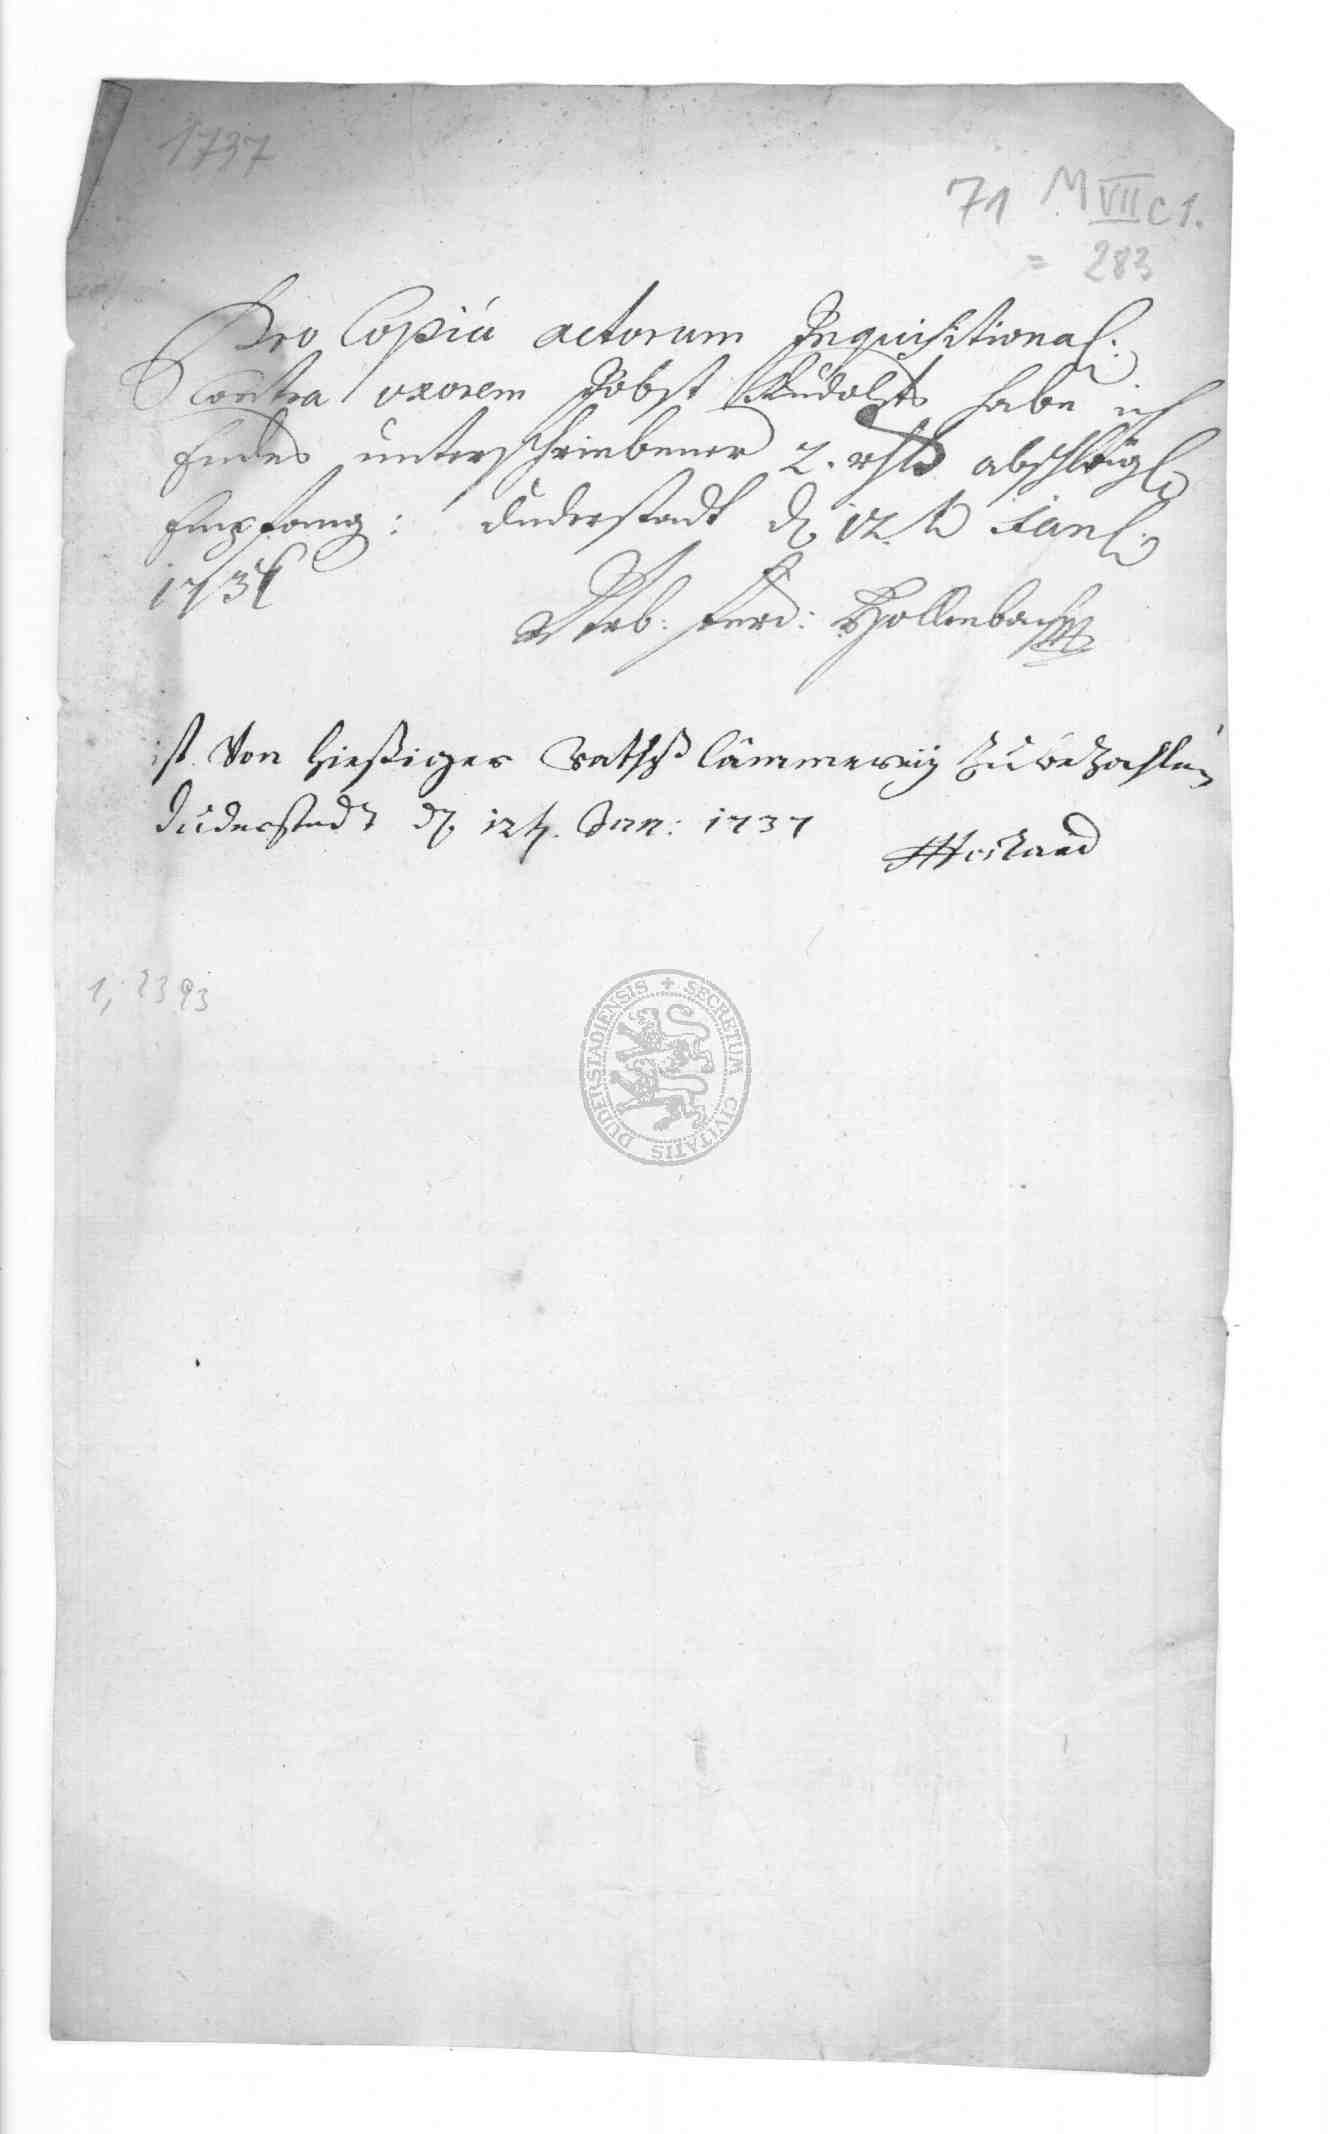 1737
71 M VII c 1.
= 283
Pro Copia actorum Inquisitional:
Contra uxorem Jobst Rudolphs habe ich
Endes unterschriebener 2. rthlr abschlägl:
Empfang: Duderstadt d 12 t Jan:
1737
Ferd: Hollenbach
ist Von hießiger Raths Cämmereÿ Zu bezahlen
Duderstadt d. 12t. Jan: 1737
1, 2393
SECRETUM CIVITATIS DUDERSTADIENSIS